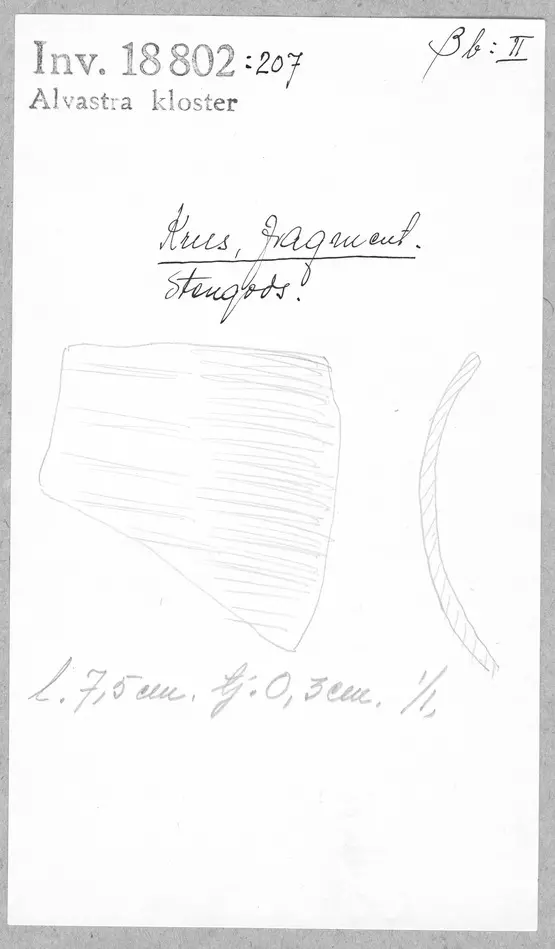 Inv. 18802:207
βb: II
Alvastra kloster
Krus, fragment.
Stengods.
l. 7,5 cm. tj. 0,3 cm. 1/1